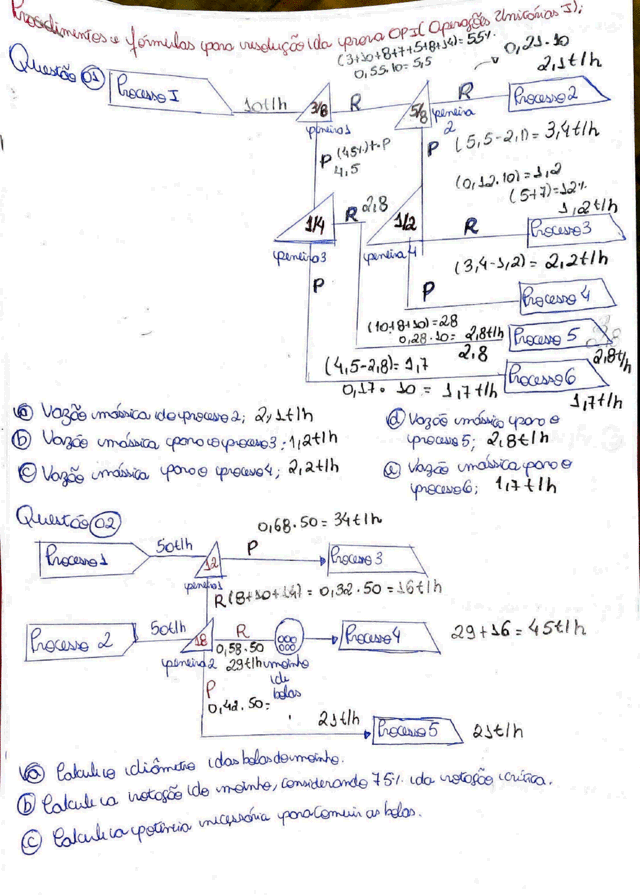 Procedimentos e fórmulas para resolução da prova OPI (Operações Unitárias I);
Questão 01
Processo I
10t/h
3/8
peneira 1
R
(3+10+8+7+5+8+14)=55%
0,55.10=5,5
5/8
peneira 2
R
0,21.10
2,1t/h
Processo 2
P (45%)→P
4,5
P (5,5-2,1)=3,4t/h
(0,12.10)=1,2
(5+7)=12%
1,2t/h
1/4
peneira 3
R 2,8
1/2
peneira 4
R
Processo 3
(3,4-1,2)=2,2t/h
P
P
Processo 4
(10+8+10)=28
0,28.10=2,8t/h
2,8
Processo 5
2,8t/h
(4,5-2,8)=1,7
0,17.10=1,7t/h
Processo 6
1,7t/h
a) Vazão mássica do processo 2; 2,1t/h
b) Vazão mássica para o processo 3; 1,2t/h
c) Vazão mássica para o processo 4; 2,2t/h
d) Vazão mássica para o
processo 5; 2,8t/h
e) Vazão mássica para o
processo 6; 1,7t/h
Questão 02
0,68.50=34t/h
Processo 1
50t/h
12
peneira 1
P
Processo 3
R(8+10+14)=0,32.50=16t/h
Processo 2
50t/h
18
peneira 2
R
0,58.50
29t/h
moinho
de
bolas
Processo 4
29+16=45t/h
P
0,42.50=
21t/h
Processo 5
21t/h
a) Calcule o diâmetro das bolas do moinho.
b) Calcule a rotação do moinho, considerando 75% da rotação crítica.
c) Calcule a potência necessária para Comuir as bolas.